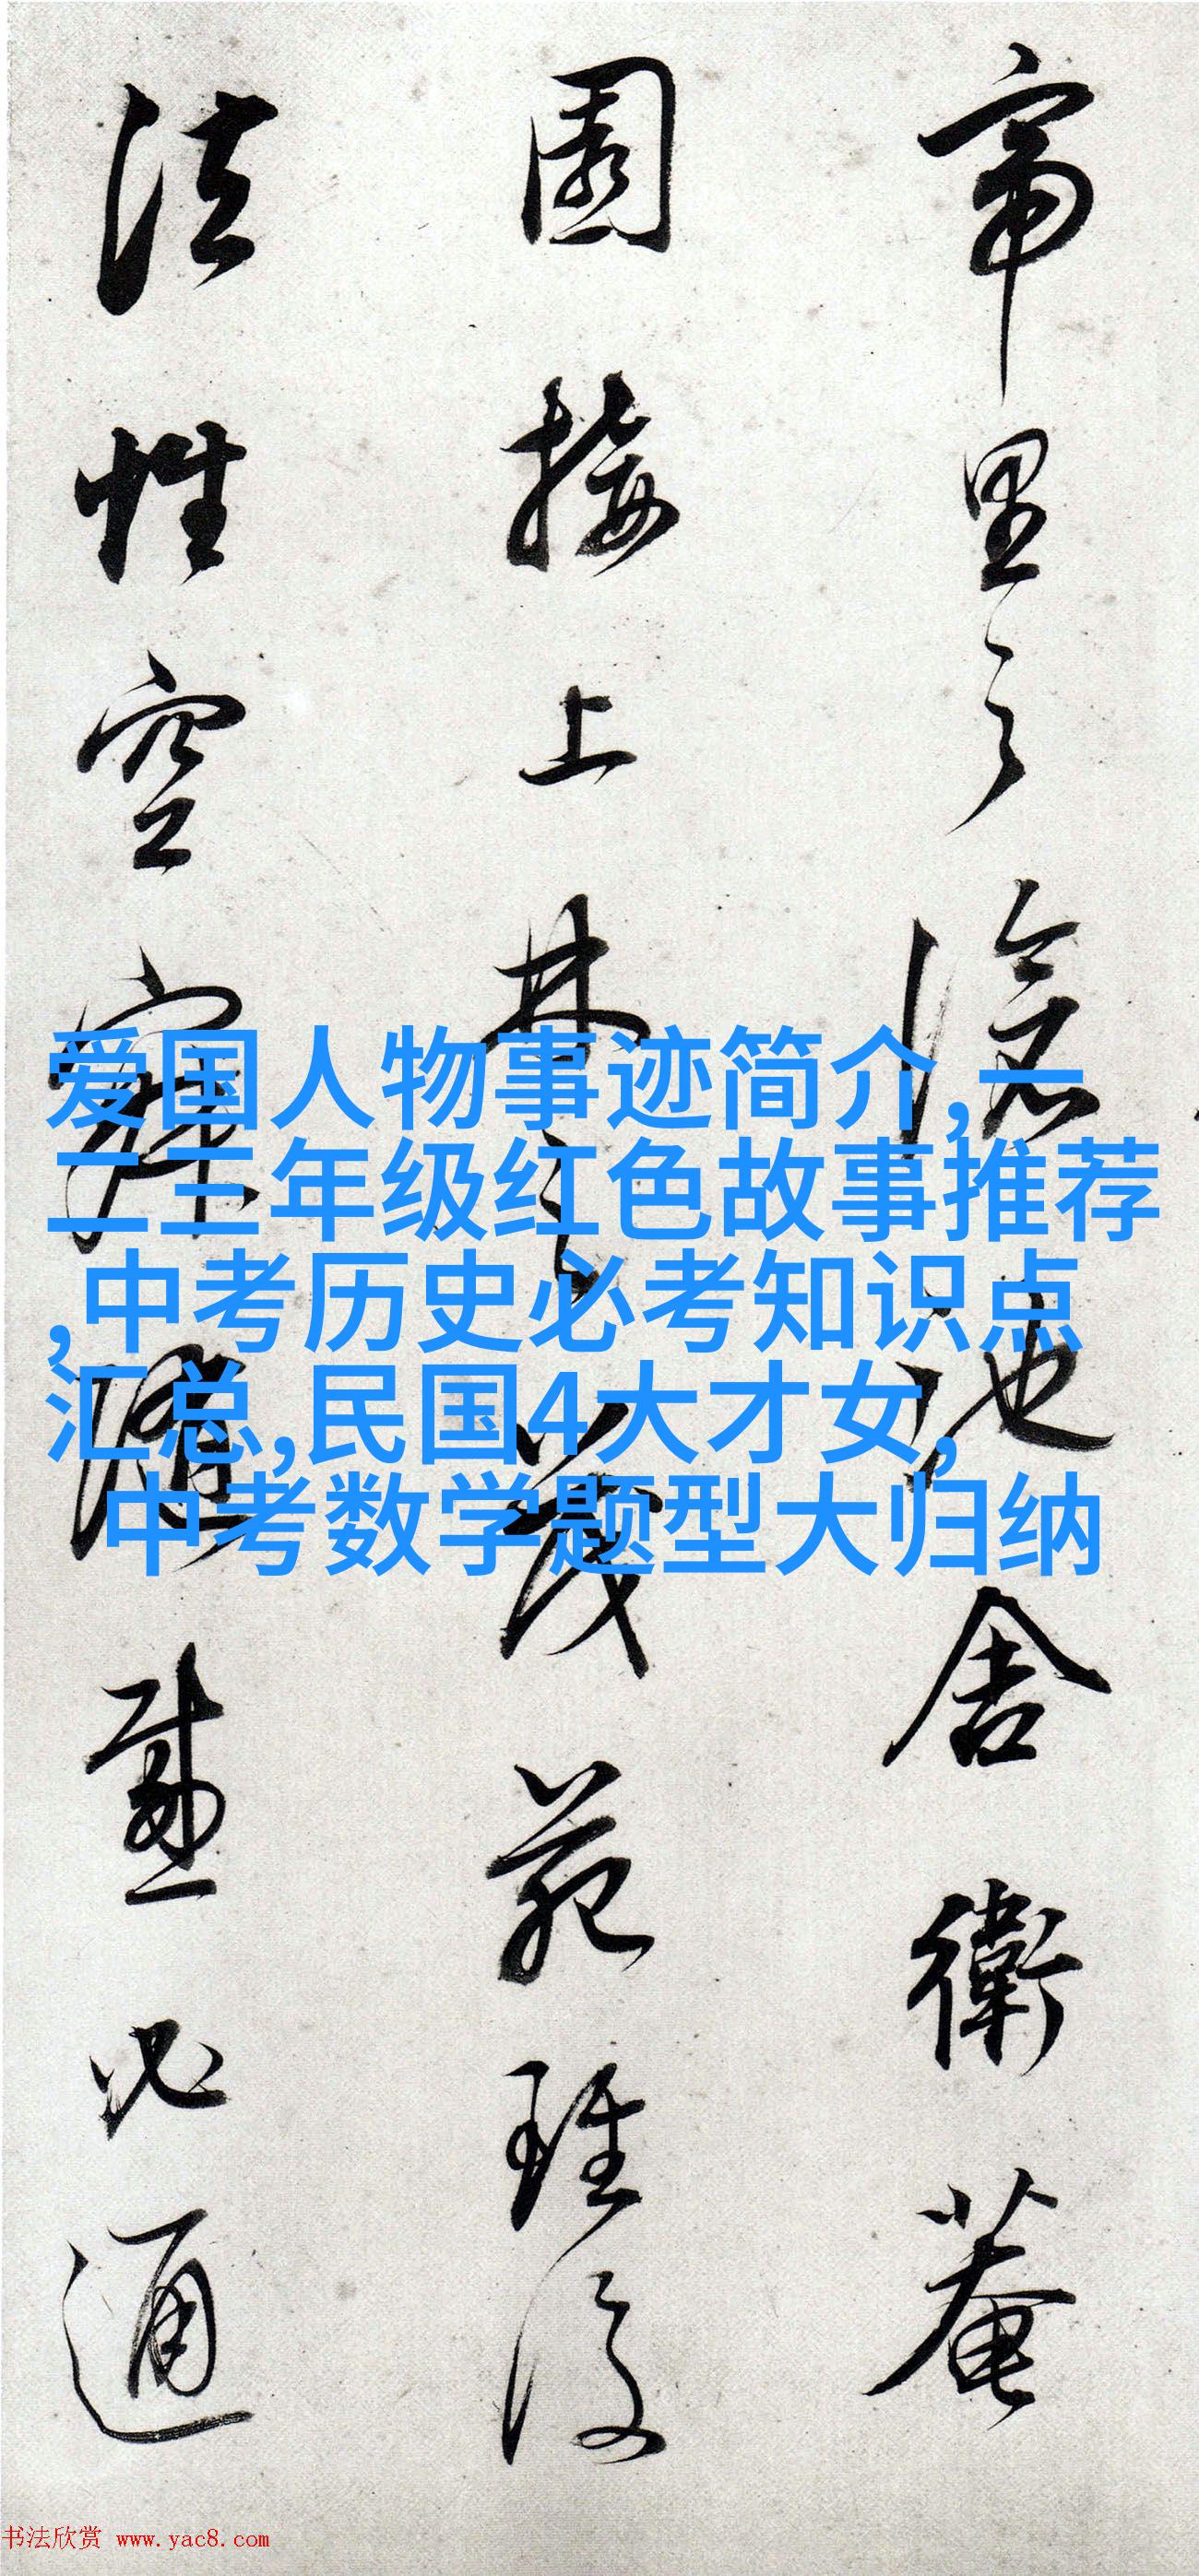 帝里之滄池舍衛菴
園接上林之茂苑雖復
法性空寂隨感必通
爱国人物事迹简介,一
二三年级红色故事推荐
,中考历史必考知识点
汇总,民国4大才女,
中考数学题型大归纳
书法欣赏 www.yac8.com